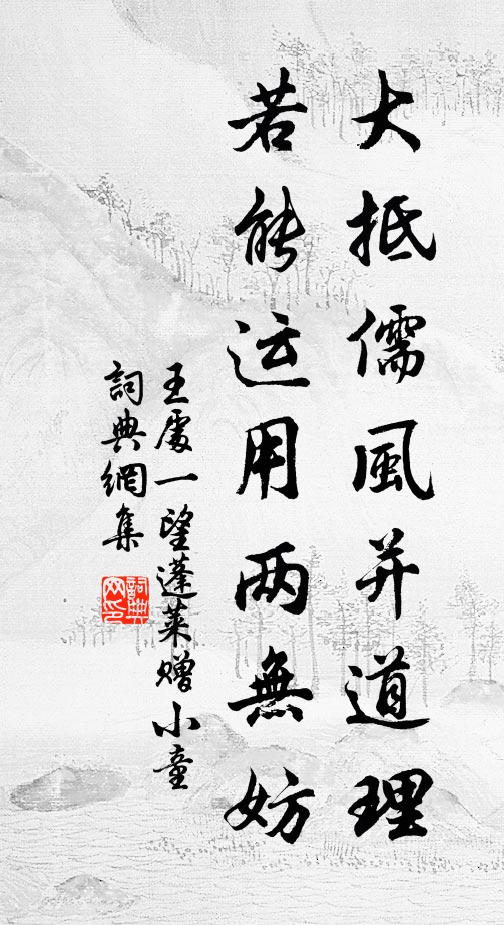 大抵儒風并道理
若能运用两無妨
王處一望蓬莱赠小童
詞典網集